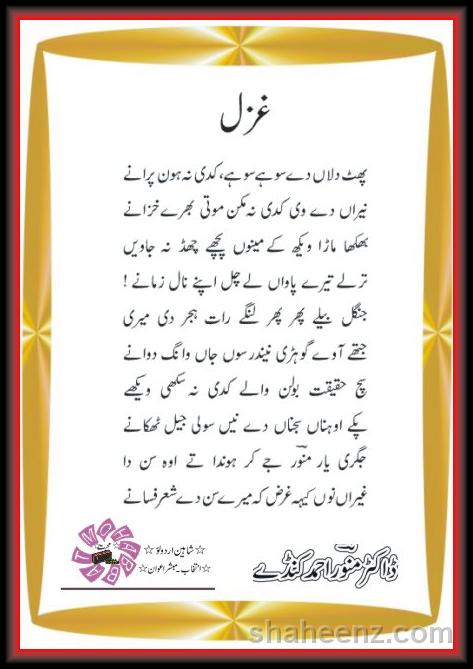 غزل
پھٹ دلاں دے سوہے سوہے، کدی نہ ہون پرانے
نیراں دے وی کدی نہ مکن موتی بھرے خزانے
بھکھا ماڑا ویکھ کے مینوں پچھے چھڈ نہ جاویں
ترلے تیرے پاواں لے چل اپنے نال زمانے !
جنگل بیلے پھر پھر لنگے رات ہجر دی میری
جتھے آوے گوہڑی نیندر سوں جاں وانگ دوانے
سچ حقیقت بولن والے کدی نہ سکھی ویکھے
پکے اوہناں سجناں دے نیں سولی جیل ٹھکانے
جگری یار منوؔر جے کر ہوندا تے اوہ سن دا
غیراں نوں کیہہ غرض کہ میرے سن دے شعر فسانے
☆ شاہین اردو لو ☆
☆ انتخاب۔ مبشر اعوان ☆
ڈاکٹر منوؔر احمد کنڈے
shaheenz.com